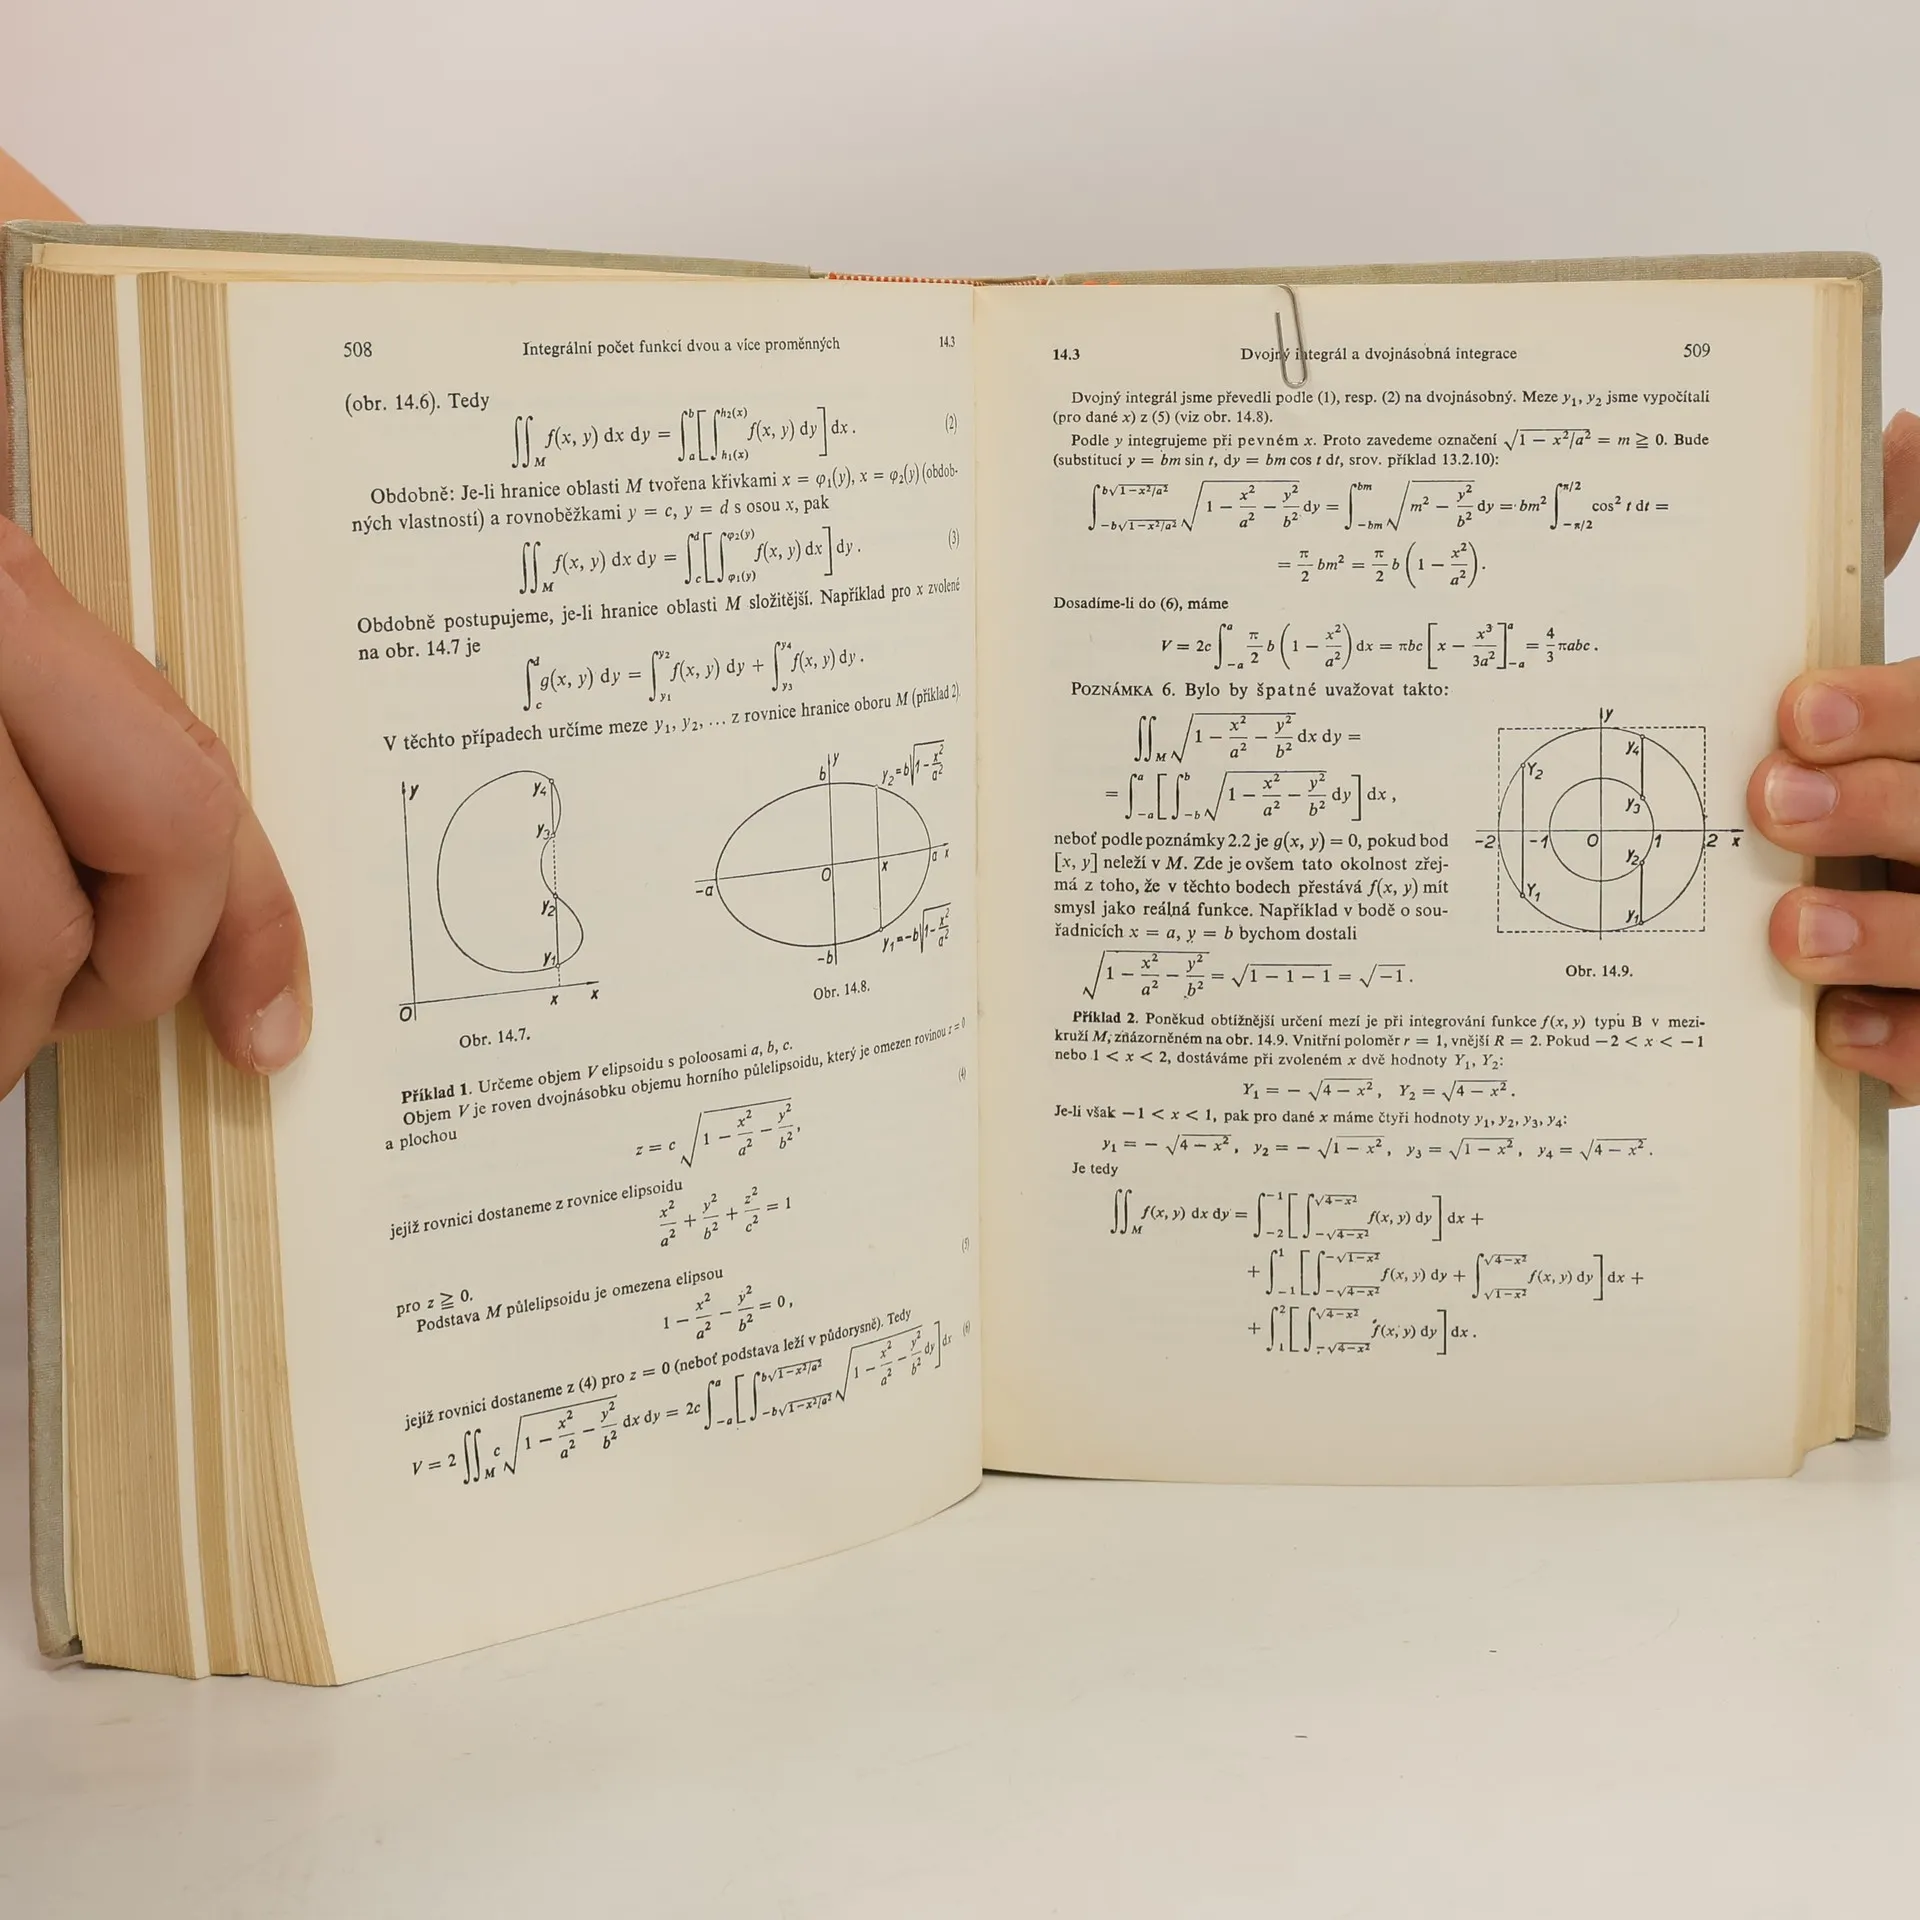 508 Integrální počet funkcí dvou a více proměnných 14.3
(obr. 14.6). Tedy
∬_M f(x, y) dx dy = ∫_a^b [ ∫_{h₁(x)}^{h₂(x)} f(x, y) dy ] dx . (2)
Obdobně: Je-li hranice oblasti M tvořena křivkami x = φ₁(y), x = φ₂(y) (obdob-
ných vlastností) a rovnoběžkami y = c, y = d s osou x, pak
∬_M f(x, y) dx dy = ∫_c^d [ ∫_{φ₁(y)}^{φ₂(y)} f(x, y) dx ] dy . (3)
Obdobně postupujeme, je-li hranice oblasti M složitější. Například pro x zvolené
na obr. 14.7 je
∫_c^d g(x, y) dy = ∫_{y₁}^{y₂} f(x, y) dy + ∫_{y₃}^{y₄} f(x, y) dy .
V těchto případech určíme meze y₁, y₂, ... z rovnice hranice oboru M (příklad 2).
y y₄ y₃ y₂ y₁ 0 x x
Obr. 14.7.
b y y₂=b√(1-x²/a²) -a 0 x a x -b y₁=-b√(1-x²/a²)
Obr. 14.8.
Příklad 1. Určeme objem V elipsoidu s poloosami a, b, c.
Objem V je roven dvojnásobku objemu horního půlelipsoidu, který je omezen rovinou z = 0
a plochou (4)
z = c √(1 − x²/a² − y²/b²),
jejíž rovnici dostaneme z rovnice elipsoidu
x²/a² + y²/b² + z²/c² = 1
pro z ≧ 0.
Podstava M půlelipsoidu je omezena elipsou (5)
1 − x²/a² − y²/b² = 0,
jejíž rovnici dostaneme z (4) pro z = 0 (neboť podstava leží v půdorysně). Tedy
V = 2 ∬_M c √(1 − x²/a² − y²/b²) dx dy = 2c ∫_{-a}^{a} [ ∫_{-b√(1−x²/a²)}^{b√(1−x²/a²)} √(1 − x²/a² − y²/b²) dy ] dx (6)
14.3 Dvojný integrál a dvojnásobná integrace 509
Dvojný integrál jsme převedli podle (1), resp. (2) na dvojnásobný. Meze y₁, y₂ jsme vypočítali
(pro dané x) z (5) (viz obr. 14.8).
Podle y integrujeme při pevném x. Proto zavedeme označení √(1 − x²/a²) = m ≧ 0. Bude
(substitucí y = bm sin t, dy = bm cos t dt, srov. příklad 13.2.10):
∫_{-b√(1−x²/a²)}^{b√(1−x²/a²)} √(1 − x²/a² − y²/b²) dy = ∫_{-bm}^{bm} √(m² − y²/b²) dy = bm² ∫_{-π/2}^{π/2} cos² t dt =
= π/2 bm² = π/2 b (1 − x²/a²).
Dosadíme-li do (6), máme
V = 2c ∫_{-a}^{a} π/2 b (1 − x²/a²) dx = πbc [x − x³/3a²]_{-a}^{a} = 4/3 πabc .
POZNÁMKA 6. Bylo by špatné uvažovat takto:
∬_M √(1 − x²/a² − y²/b²) dx dy =
= ∫_{-a}^{a} [ ∫_{-b}^{b} √(1 − x²/a² − y²/b²) dy ] dx ,
neboť podle poznámky 2.2 je g(x, y) = 0, pokud bod
[x, y] neleží v M. Zde je ovšem tato okolnost zřej-
má z toho, že v těchto bodech přestává f(x, y) mít
smysl jako reálná funkce. Například v bodě o sou-
řadnicích x = a, y = b bychom dostali
√(1 − x²/a² − y²/b²) = √(1 − 1 − 1) = √−1 .
y y₄ Y₂ y₃ -2 -1 0 1 2 x y₂ Y₁ y₁
Obr. 14.9.
Příklad 2. Poněkud obtížnější určení mezí je při integrování funkce f(x, y) typu B v mezi-
kruží M, znázorněném na obr. 14.9. Vnitřní poloměr r = 1, vnější R = 2. Pokud −2 < x < −1
nebo 1 < x < 2, dostáváme při zvoleném x dvě hodnoty Y₁, Y₂:
Y₁ = − √(4 − x²) , Y₂ = √(4 − x²) .
Je-li však −1 < x < 1, pak pro dané x máme čtyři hodnoty y₁, y₂, y₃, y₄:
y₁ = − √(4 − x²) , y₂ = − √(1 − x²) , y₃ = √(1 − x²) , y₄ = √(4 − x²) .
Je tedy
∬_M f(x, y) dx dy = ∫_{-2}^{-1} [ ∫_{-√(4−x²)}^{√(4−x²)} f(x, y) dy ] dx +
+ ∫_{-1}^{1} [ ∫_{-√(4−x²)}^{-√(1−x²)} f(x, y) dy + ∫_{√(1−x²)}^{√(4−x²)} f(x, y) dy ] dx +
+ ∫_1^2 [ ∫_{-√(4−x²)}^{√(4−x²)} f(x, y) dy ] dx .